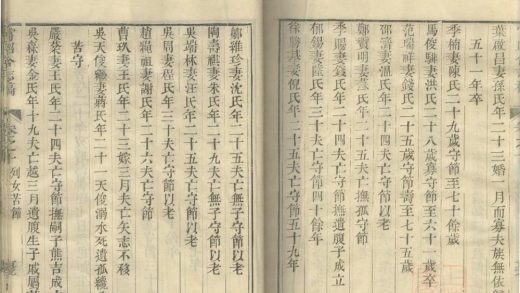 葉啟昌妻孫氏年二十三婚一月而寡夫族無依歸
五十一年卒
季侑妻陳氏二十九歲守節至七十餘歲
馬俊驊妻洪氏二十八歲寡守節至六十一歲卒
范瑞祥妻錢氏二十五歲守節壽至七十五歲
邵壽妻溫氏二十四夫亡守節以老
鄭寶明妻戴氏二十五夫亡撫孤守節
季賜妻錢氏年二十四夫亡守節撫遺腹子成立
郁錫妻陸氏年三十夫亡守節四十餘年
徐勝基妻倪氏年二十五夫亡守節五十九年
鄭維珍妻沈氏年二十五夫亡守節以老
陶壽祺妻朱氏年二十六夫亡無子守節以老
吳端林妻汪氏年二十夫亡無子守節以老
吳周妻程氏年三十夫亡守節以老
趙龍祺妻謝氏年二十六夫亡守節
曹㺨妻王氏年二十三嫁三月夫亡矢志不移
吳天俊繼妻蔣氏年二十一天俊溺水死遺孤纔
苦守
嚴榮妻王氏年二十四夫亡守節撫嗣子熊吉成
吳祿妻金氏年十九夫亡越三月遺腹生子成
卷之十 列女苦節